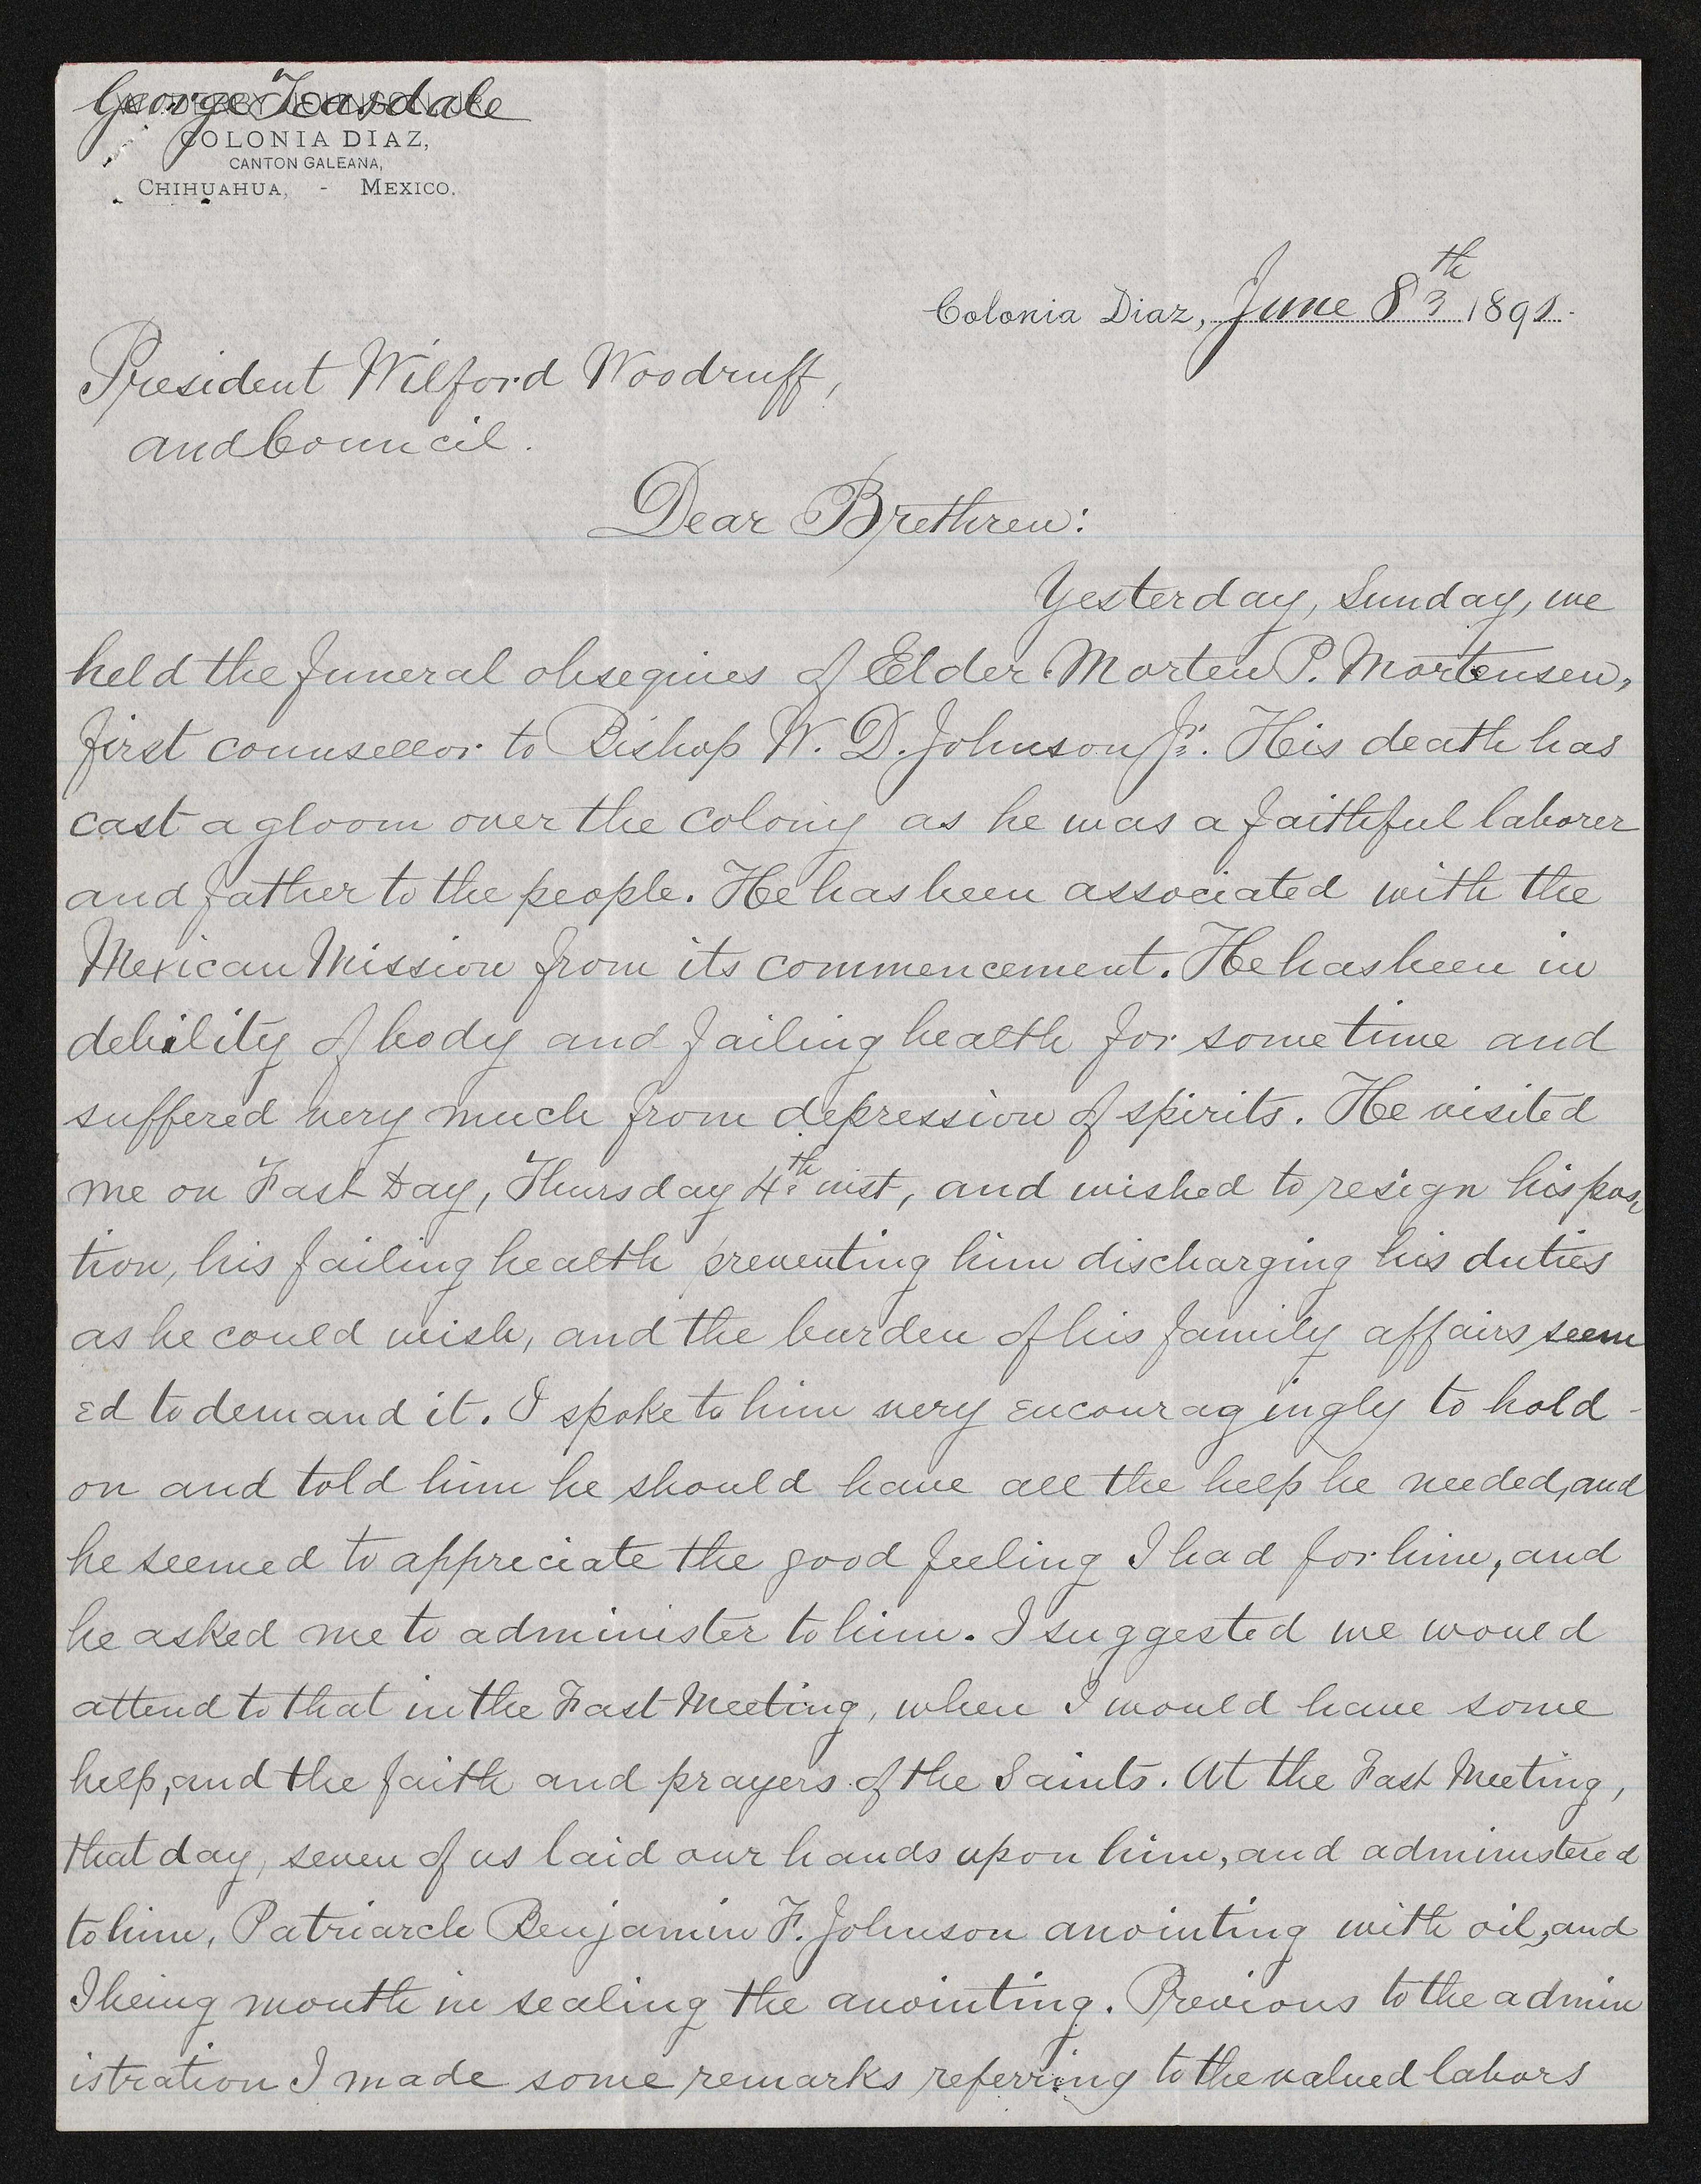 George Teasdale
COLONIA DIAZ,
CANTON GALEANA,
CHIHUAHUA, - MEXICO.
Colonia Diaz, June 8th 1891.
President Wilford Woodruff,
and Council.
Dear Brethren:
Yesterday, Sunday, we
held the funeral obsequies of Elder Morten P. Mortensen,
first counsellor to Bishop W. D. Johnson Jr. His death has
cast a gloom over the colony as he was a faithful laborer
and father to the people. He has been associated with the
Mexican Mission from its commencement. He has been in
debility of body and failing health for some time and
suffered very much from depression of spirits. He visited
me on Fast Day, Thursday 4th inst, and wished to resign his posi
tion, his failing health preventing him discharging his duties
as he could wish, and the burden of his family affairs seem
ed to demand it. I spoke to him very encouragingly to hold
on and told him he should have all the help he needed, and
he seemed to appreciate the good feeling I had for him, and
he asked me to administer to him. I suggested we would
attend to that in the Fast Meeting, when I would have some
help, and the faith and prayers of the Saints. At the Fast Meeting,
that day, seven of us laid our hands upon him, and administered
to him, Patriarch Benjamin F. Johnson anointing with oil, and
I being mouth in sealing the anointing. Previous to the admin
istration I made some remarks referring to the valued labors